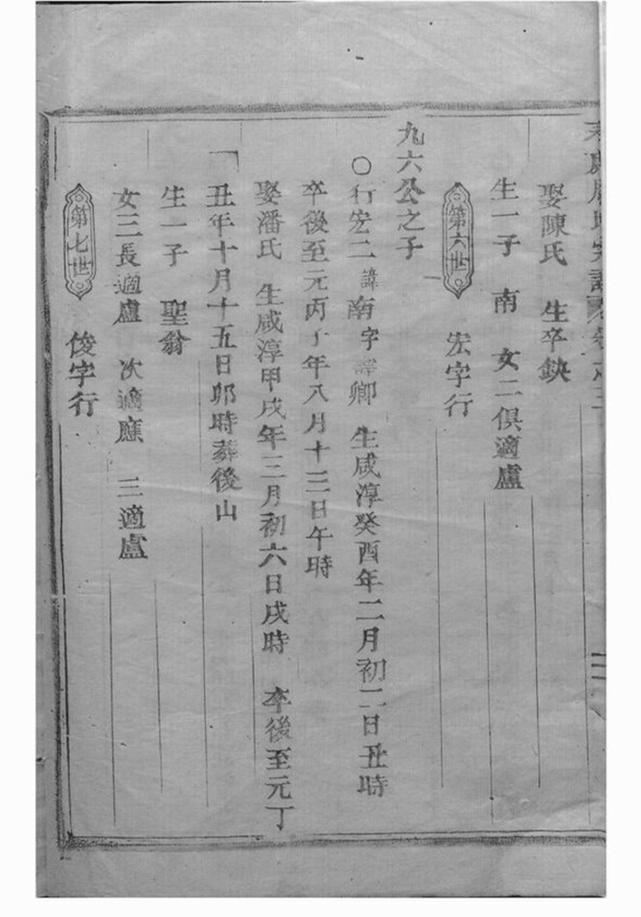 周氏宗譜卷之三
娶陳氏　生卒缺
生一子　南　女二俱適盧
第六世　宏字行
九六公之子
〇行宏二　諱南　字譯卿　生咸淳癸酉年二月初二日丑時
卒後至元丙子年八月十三日午時
娶潘氏　生咸淳甲戌年三月初六日戌時　卒後至元丁
丑年十月十五日卯時葬後山
生一子　聖翁
女三長適盧　次適應　三適盧
第七世　俊字行